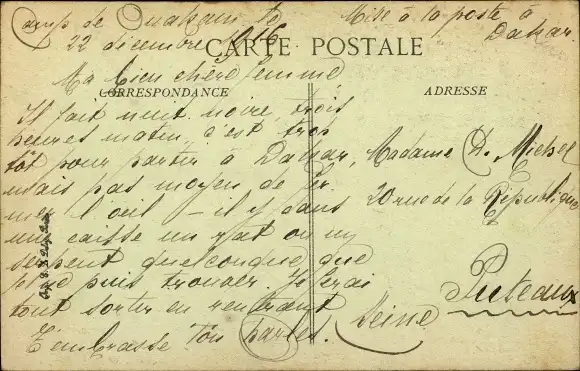 Camp de Ouakam to
22 décembre 1916
Mise à la poste à
Dakar.
CARTE POSTALE
Ma bien chère femme,
CORRESPONDANCE
ADRESSE
Il fait nuit noire, trois
heures matin, c'est trop
tôt pour partir à Dakar,
mais pas moyen de fer
mer l'oeil – il y a dans
une caisse un rat ou un
serpent quelconque que
je ne puis trouver. Je ferai
tout sortir en rentrant
T'embrasse Ton
Madame Ch. Michel
20 rue de la République
Puteaux
Seine